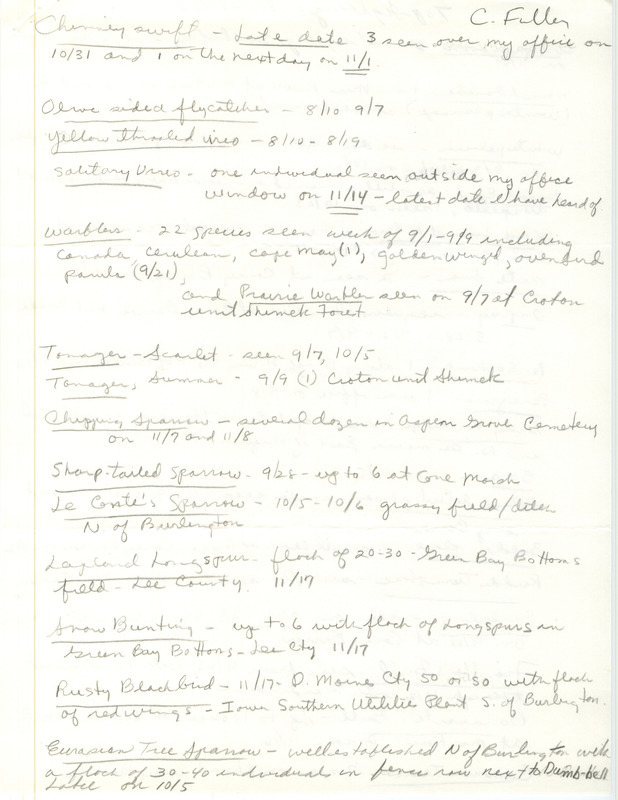 C. Fuller
Chimney swift - Late date 3 seen over my office on
10/31 and 1 on the next day on 11/1.
Olive sided flycatcher - 8/10 9/7
Yellow throated vireo - 8/10 - 8/19
Solitary Vireo - one individual seen outside my office
window on 11/14 - latest date I have heard of
Warblers - 22 species seen week of 9/1-9/9 including
Canada, cerulean, cape may (1), goldenwing'd, ovenbird
parula (9/21),
and Prairie Warbler seen on 9/7 at Croton
unit Shimek Forest
Tanager - Scarlet - seen 9/7, 10/5
Tanager, Summer - 9/9 (1) Croton unit Shimek
Chipping Sparrow - several dozen in Aspen Grove Cemetery
on 11/7 and 11/8
Sharp-tailed sparrow - 9/28 - up to 6 at Cone Marsh
Le Conte's Sparrow - 10/5 - 10/6 grassy field/ditch
N of Burlington
Lapland Longspur - flock of 20-30 - Green Bay Bottoms
field - Lee County. 11/17
Snow Bunting - up to 6 with flock of Longspurs in
Green Bay Bottoms - Lee Cty 11/17
Rusty Blackbird - 11/17 - D. Moines Cty 50 or so with flock
of redwings - Iowa Southern Utilities Plant S. of Burlington.
Eurasian Tree Sparrow - well established N of Burlington with
a flock of 30-40 individuals in fence row next to Dumb-bell
Lake on 10/5